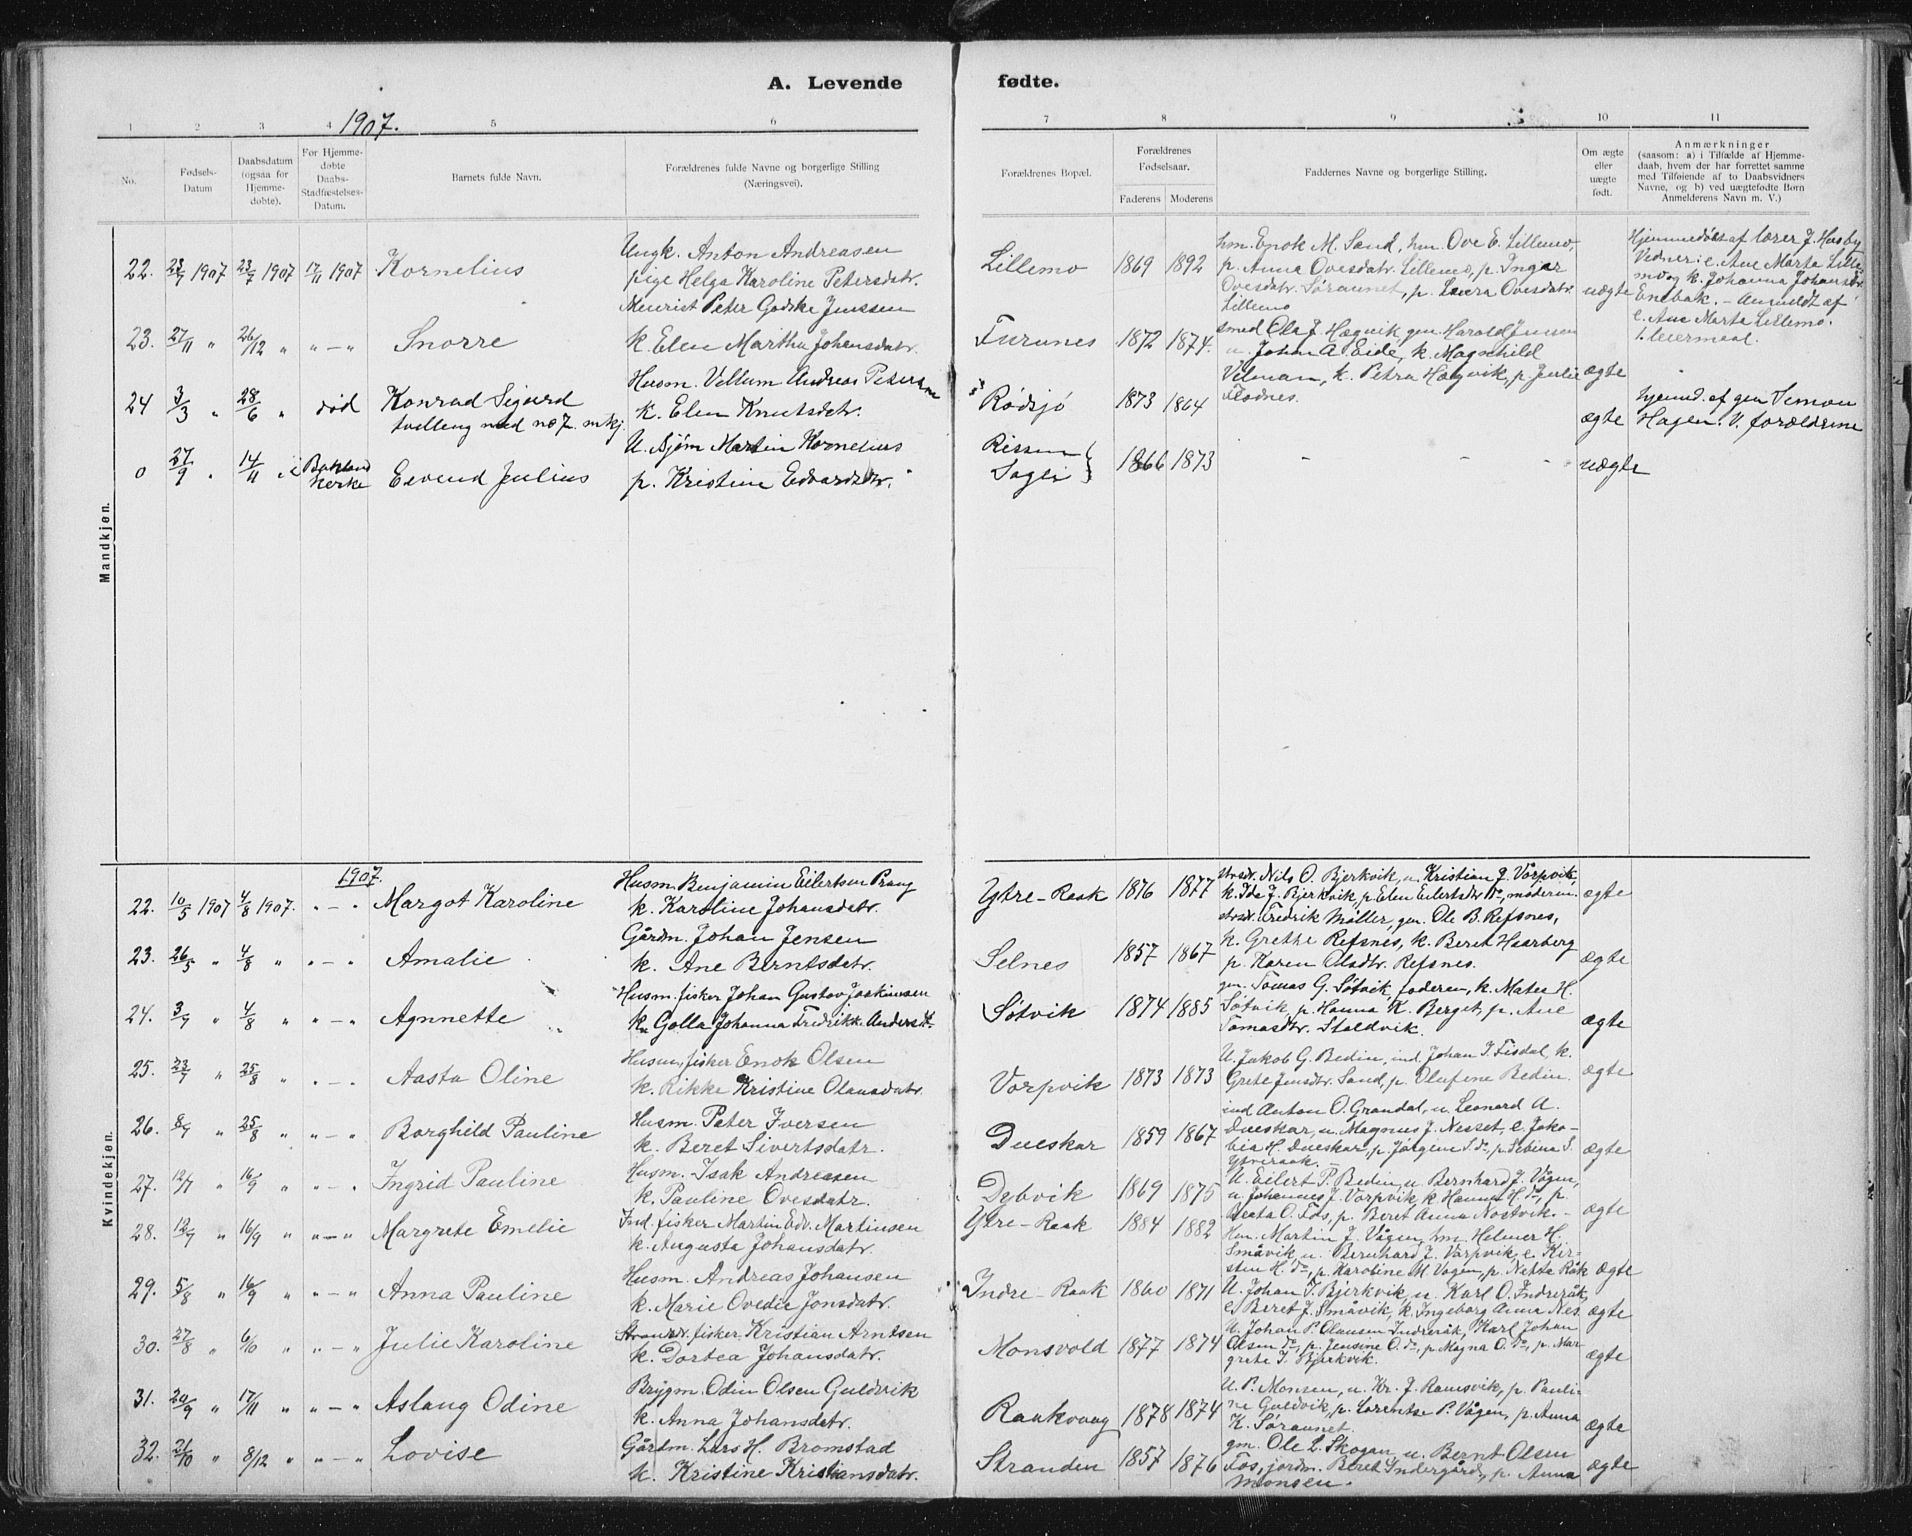 A. Levende fødte.
1907.
1 2 3 4 5 6 7 8 9 10 11
No.
Fødsels-
Datum
Daabsdatum
(ogsaa for
Hjemme-
døbte).
For Hjemme-
døbte
Daabs-
Stadfæstelses-
Datum.
Barnets fulde Navn.
Forældrenes fulde Navne og borgerlige Stilling
(Næringsvei).
Forældrenes Bopæl.
Forældrenes
Fødselsaar.
Faderens Moderens
Faddernes Navne og borgerlige Stilling.
Om ægte
eller
uægte
født.
Anmærkninger
(saasom: a) i Tilfælde af Hjemme-
daab, hvem der har forrettet samme
med Tilføiende af to Daabsvidners
Navne, og b) ved uægtefødte Børn
Anmelderens Navn m. V.)
Mandkjøn.
22. 23/7 1907 23/7 1907 17/11 1907 Kornelius
Ungk. Anton Andreasen
pige Helga Karoline Petersdatr.
Lillemo 1869 1892
hm. Enok M. Sand, hm. Ove E. Lillemo,
p. Anna Ovesdatr. Lillemo, p. Inger
Ovesdatr. Søraunet, p. Laura Ovesdatr.
Lillemo
uægte
Hjemmedøbt af lærer J. Husby
Vidner: e. Ane Marta Lille
mo og k. Johanna Johansdtr
Enebak. - Anmeldt af
e. Ane Marta Lillemo.
1. leiermaal.
23. 27/11 " 26/12 " " - " Snorre
Peter Godske Jenssen
k. Elen Martha Johansdatr.
Furunes 1872 1874.
smed Ola J. Hægvik, gm. Harald Jensen
u. Johan A. Eide, k. Magnhild
Vilman, k. Petra Hægvik, p. Julie
Flodnes.
ægte
24 3/3 " 28/6 " død Konrad Sigurd
tvilling med no 7. mkj.
Husm. Vellum Andreas Petersen
k. Elen Knutsdtr.
Rødsjø 1873 1864
ægte
hjemd. af gm Simon
Hagen. V. forældrene
0 27/9 " 14/11 i Bakland
kirke
Eivind Julius
U. Asjøm Martin Kornelius
p. Kristine Edvardsdtr.
Rissen
Sagli
1866 1873
- - -
uægte
Kvindekjøn.
1907.
22. 10/5 1907 4/8 1907. " - " Margot Karoline
Husm. Benjamin Eilertsen Prang
k. Karoline Johansdatr.
Ytre-Raak 1876 1877
strsdr. Nils O. Bjerkvik, u. Kristian J. Vårpvik,
k. Ida J. Bjerkvik, p. Elen Eilertsdtr do, moderen
ægte
23. 26/5 " 4/8 " " - " Amalie
Gårdm. Johan Jensen
k. Ane Berntsdatr.
Selnes 1857 1867
strsdr. Fredrik Møller, gm. Ole B. Refsnes,
k. Grethe Refsnes, k. Beret Haarberg
p. Karen Olsdtr. Refsnes.
ægte
24. 3/7 " 4/8 " " - " Agnnette
Husm. fisker Johan Gustav Joakimsen
k. Golla Johanna Fredrikk. Andersdtr.
Søtvik 1874 1885
gm. Tomas G. Søtvik, faderen, k. Mater H.
Søtvik, p. Hanna K. Berget, p. Ane
Tomasdtr. Staldvik.
ægte
25. 23/7 " 25/8 " " - " Aasta Oline
Husm. fisker Enok Olsen
k. Rikke Kristine Olausdatr.
Vorpvik 1873 1873
U. Jakob G. Bedin, ind. Johan I. Fisdal, k.
Grete Jensdtr. Sand, p. Olufine Bedin.
ægte
26. 8/7 " 25/8 " " - " Borghild Pauline
Husm. Peter Iversen
k. Beret Sivertsdatr.
Dueskar 1859 1867
ind Anton O. Grandal, u. Leonard A.
Dueskar, u. Magnus J. Nesset, e. Joko-
bia H. Dueskar, p. Jørgine S. do, p. Sebina S.
Ytreraak. -
ægte
27. 12/7 " 16/9 " " - " Ingrid Pauline
Husm. Isak Andreasen
k. Pauline Ovesdatr.
Dybvik 1869 1875
U. Eilert P. Bedin, u. Bernhard J. Vågen,
u. Johannes J. Vorpvik, k. Hanna H. do, p.
Beata O. Fos, p. Beret Anna Nostvik. -
ægte
28. 12/9 " 16/9 " " - " Margrete Emelie
Ind. fisker Martin Edv. Martinsen
k. Augusta Johansdatr.
Ytre-Raak 1884 1882
Hm. Martin J. Vågen, hm. Helmer H.
Småvik, u. Bernhard J. Vårpvik, e. Kir-
sten H. do, p. Karoline M. Vågen, p. Nikka Råk
ægte
29. 5/8 " 16/9 " " - " Anna Pauline
Husm. Andreas Johansen
k. Marie Ovedie Jonsdatr.
Indre-Raak 1860 1871
U. Johan T. Bjerkvik, u. Karl O. Indreråk,
e. Beret J. Småvik, k. Ingeborg Anna Nes.
ægte
30. 27/8 " 6/10 " " - " Julie Karoline
Strandsr. fisker Kristian Arntsen
k. Dortea Johansdatr.
Monsvold 1877 1874
U. Johan P. Olausen Indreråk, Karl Johan
Olsen do, p. Jensine O. do, p. Magna O. do, p. Mar-
grete T. Bjerkvik.
ægte
31. 20/9 " 17/11 " " - " Aslaug Odine
Brygm. Odin Olsen Guldvik
k. Anna Johansdatr.
Raakvaag 1878 1874
U. P. Monsen, u. Kr. J. Ramsvik, p. Pauli-
ne Guldvik, p. Lorentse P. Vågen, p. Anna
K. Søraunet.
ægte
32. 21/10 " 8/12 " " - " Lovise
Gårdm. Lars H. Bromstad
k. Kristine Kristiansdatr.
Stranden 1857 1876
gm. Ole L. Skogan, u. Bernt Olsen
Fos, jordm. Beret Indergård, p. Anna
Monsen.
ægte